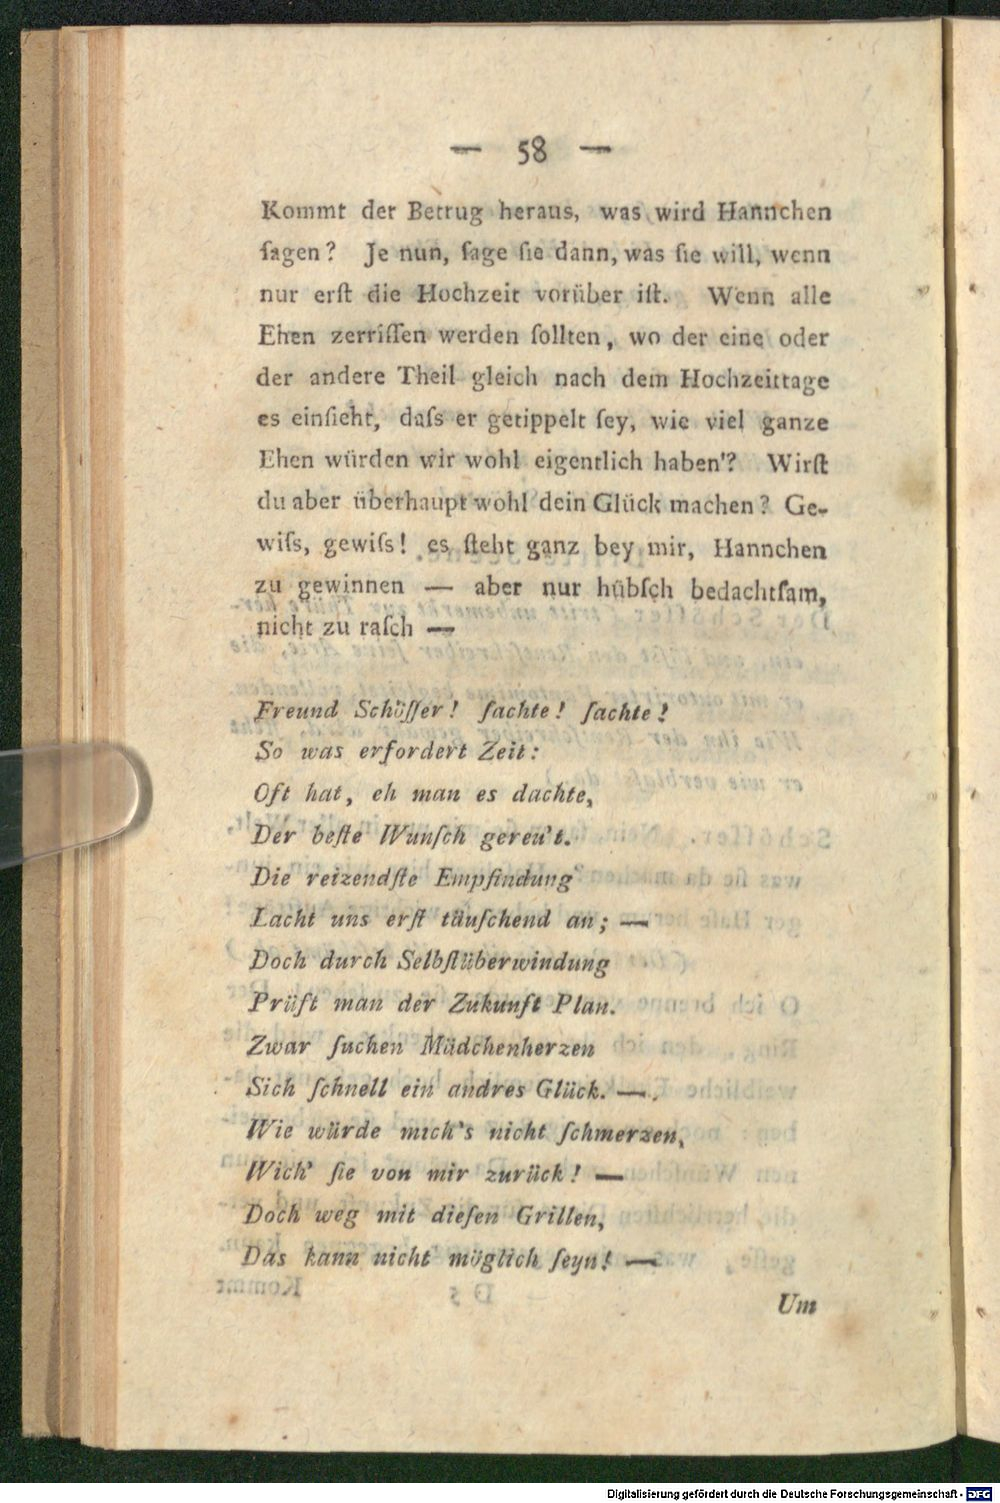 — 58 —
Kommt der Betrug heraus, was wird Hannchen
ſagen? Je nun, ſage ſie dann, was ſie will, wenn
nur erſt die Hochzeit vorüber iſt. Wenn alle
Ehen zerriſſen werden ſollten, wo der eine oder
der andere Theil gleich nach dem Hochzeittage
es einſieht, daſs er getippelt ſey, wie viel ganze
Ehen würden wir wohl eigentlich haben? Wirſt
du aber überhaupt wohl dein Glück machen? Ge-
wiſs, gewiſs! es ſteht ganz bey mir, Hannchen
zu gewinnen — aber nur hübſch bedachtſam,
nicht zu raſch —
Freund Schöſſer! ſachte! ſachte!
So was erfordert Zeit:
Oft hat, eh man es dachte,
Der beſte Wunſch gereu't.
Die reizendſte Empfindung
Lacht uns erſt täuſchend an; —
Doch durch Selbſtüberwindung
Prüft man der Zukunft Plan.
Zwar ſuchen Mädchenherzen
Sich ſchnell ein andres Glück. —
Wie würde mich's nicht ſchmerzen,
Wich' ſie von mir zurück! —
Doch weg mit dieſen Grillen,
Das kann nicht möglich ſeyn! —
Um
Digitalisierung gefördert durch die Deutsche Forschungsgemeinschaft - DFG